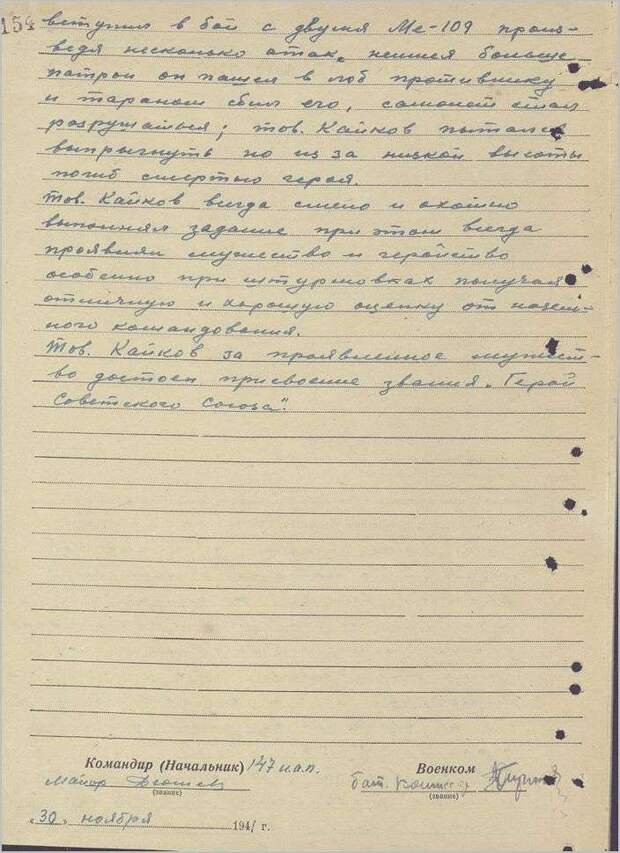 154 вступил в бой с двумя Ме-109 произ-
ведя несколько атак, неимея больше
патрон он пошел в лоб противнику
и тараном сбил его, самолет стал
разрушаться; тов. Кайков пытался
выпрыгнуть но из за низкой высоты
погиб смертью героя.
Тов. Кайков всегда смело и охотно
выполнял задание при этом всегда
проявлял мужество и геройство
особенно при штурмовках получая
отличную и хорошую оценку от назем-
ного командования.
Тов. Кайков за проявленное мужест-
во достоен присвоение звания „Герой
Советского Союза".
Командир (Начальник) 147 и.а.п. Военком
майор бат. комиссар
(звание) (звание)
„30„ ноября 1941 г.